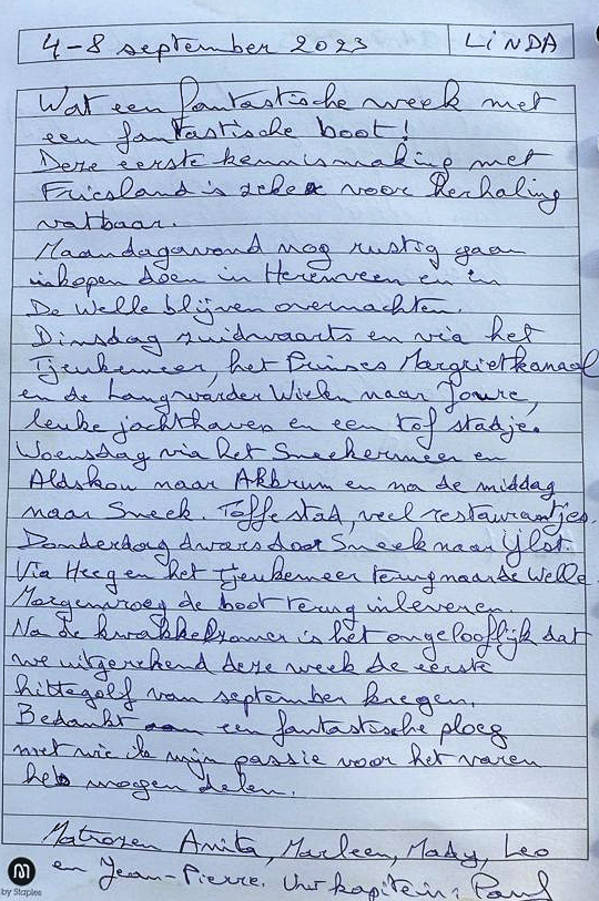 4-8 september 2023 LiNDA
Wat een fantastische week met
een fantastische boot!
Deze eerste kennismaking met
Friesland is zeker voor herhaling
vatbaar.
Maandagavond nog rustig gaan
inkopen doen in Herenveen en in
De Welle blijven overnachten.
Dinsdag zuidwaarts en via het
Tjeukemeer, het Prinses Margrietkanaal
en de Langwarder Wielen naar Joure,
leuke jachthaven en een tof stadje.
Woensdag via het Sneekermeer en
Aldskou naar Akkrum en na de middag
naar Sneek. Toffe stad, veel restaurantjes.
Donderdag dwars door Sneek naar ijlst.
Via Heeg en het Tjeukemeer terug naar de Welle.
Morgenvroeg de boot terug inleveren.
Na de kwakkelzomer is het ongelooflijk dat
we uitgerekend deze week de eerste
hittegolf van september kregen.
Bedankt aan een fantastische ploeg
met wie ik mijn passie voor het varen
heb mogen delen.
Matrozen Anita, Marleen, Mady, Leo
en Jean-Pierre. Uw kapitein: Paul
by Staples